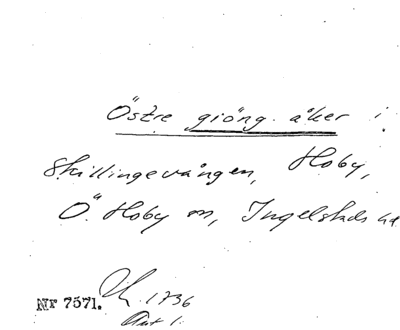 Östre giöng. åker i
Skillingevången, Hoby,
Ö. Hoby sn, Ingelstads hd
Nr 7571. 1736